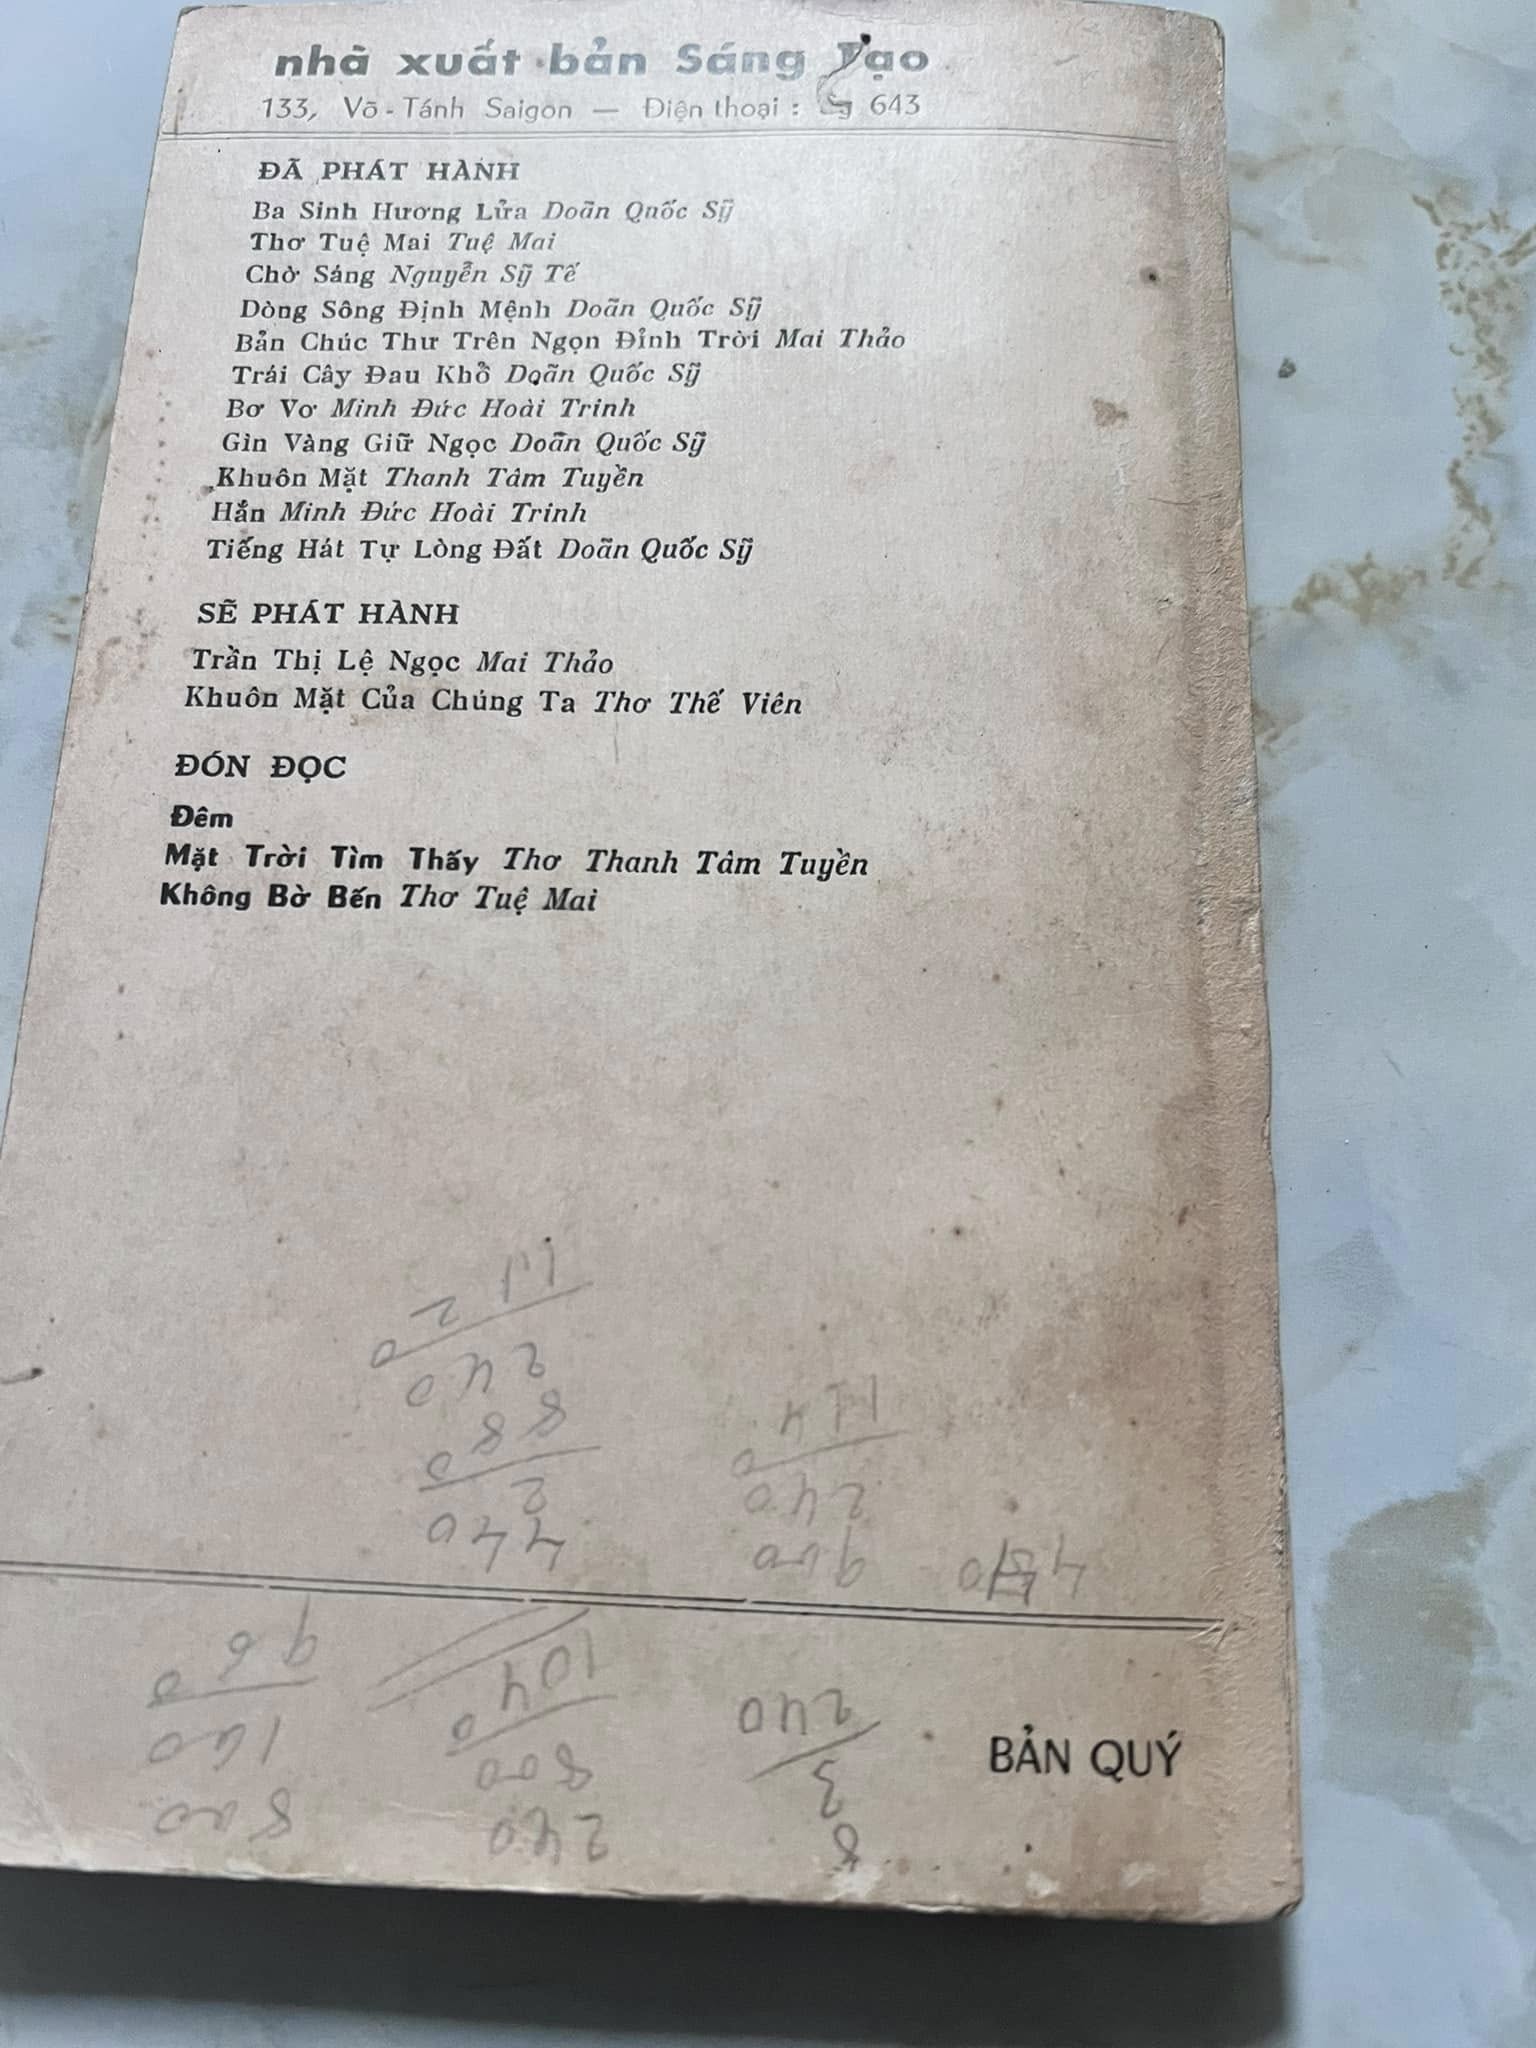 nhà xuất bản Sáng Tạo
133, Võ-Tánh Saigon — Điện thoại : 643
ĐÃ PHÁT HÀNH
Ba Sinh Hương Lửa Doãn Quốc Sỹ
Thơ Tuệ Mai Tuệ Mai
Chờ Sáng Nguyễn Sỹ Tế
Dòng Sông Định Mệnh Doãn Quốc Sỹ
Bản Chúc Thư Trên Ngọn Đỉnh Trời Mai Thảo
Trái Cây Đau Khổ Doãn Quốc Sỹ
Bơ Vơ Minh Đức Hoài Trinh
Gìn Vàng Giữ Ngọc Doãn Quốc Sỹ
Khuôn Mặt Thanh Tâm Tuyền
Hắn Minh Đức Hoài Trinh
Tiếng Hát Tự Lòng Đất Doãn Quốc Sỹ
SẼ PHÁT HÀNH
Trần Thị Lệ Ngọc Mai Thảo
Khuôn Mặt Của Chúng Ta Thơ Thế Viên
ĐÓN ĐỌC
Đêm
Mặt Trời Tìm Thấy Thơ Thanh Tâm Tuyền
Không Bờ Bến Thơ Tuệ Mai
BẢN QUÝ
8
3
240
240
800
1040
800
160
960
900
240
1140
440
2
880
240
1120